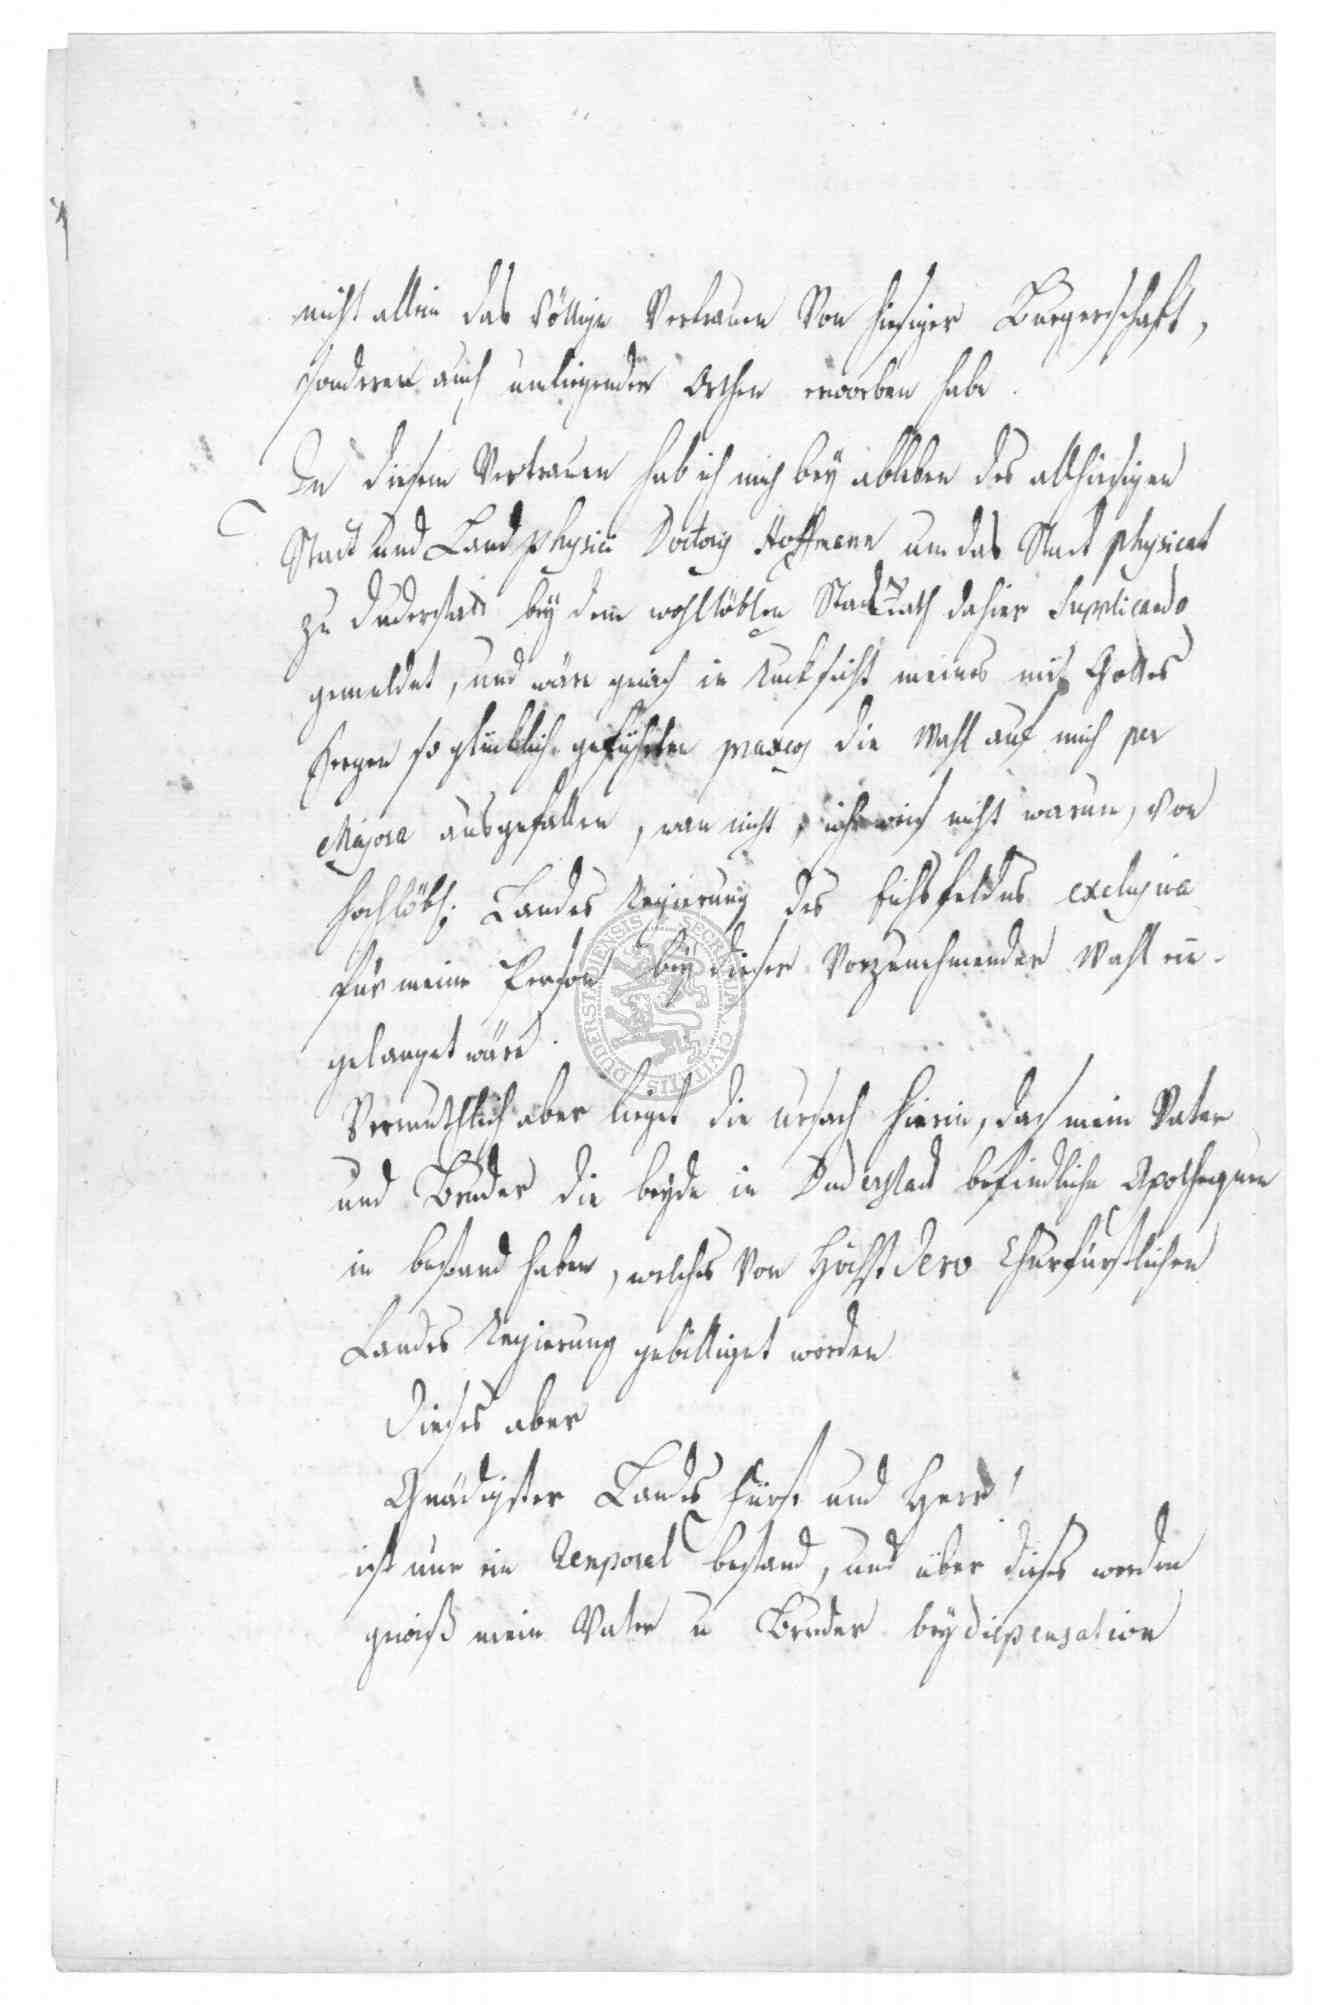 nicht allein das völlige Vertrauen Von hiesiger Burgerschaft,
sonderen auch umliegender Orthen erworben habe.
In diesem Vertrauen hab ich mich bey ableben des allhiesigen
Stadt und Land physici Doctoris Hoffmann um das Stadt physicat
zu Duderstatt bey dem wohllöblen Stadtrath dahier supplicando
gemeldet, und wäre gewis in Rucksicht meines mit Gottes
seegen so glücklich geführten praxeos die Wahl auf mich per
Majora ausgefallen, wan nicht, ich weis nicht warum, von
hochlöbl: Landes Regierung des Eichsfeldes exclusiva
für meine Person bey dieser Vorzunehmender Wahl ein-
gelanget wäre.
Vermuthlich aber lieget die ursach hierin, das mein Vater
und Bruder die beyde in Duderstadt befindliche Apothequen
in bestand haben, welches Von Höchst Dero Churfürstlichen
Landes Regierung gebilliget worden
Dieses aber
Gnädigster Landes Fürst und Herr!
ist nur ein Temporel bestand, und über dieses werden
gewiß mein Vater u Bruder bey dispensation
SECRETUM CIVITATIS DUDERSTADIENSIS